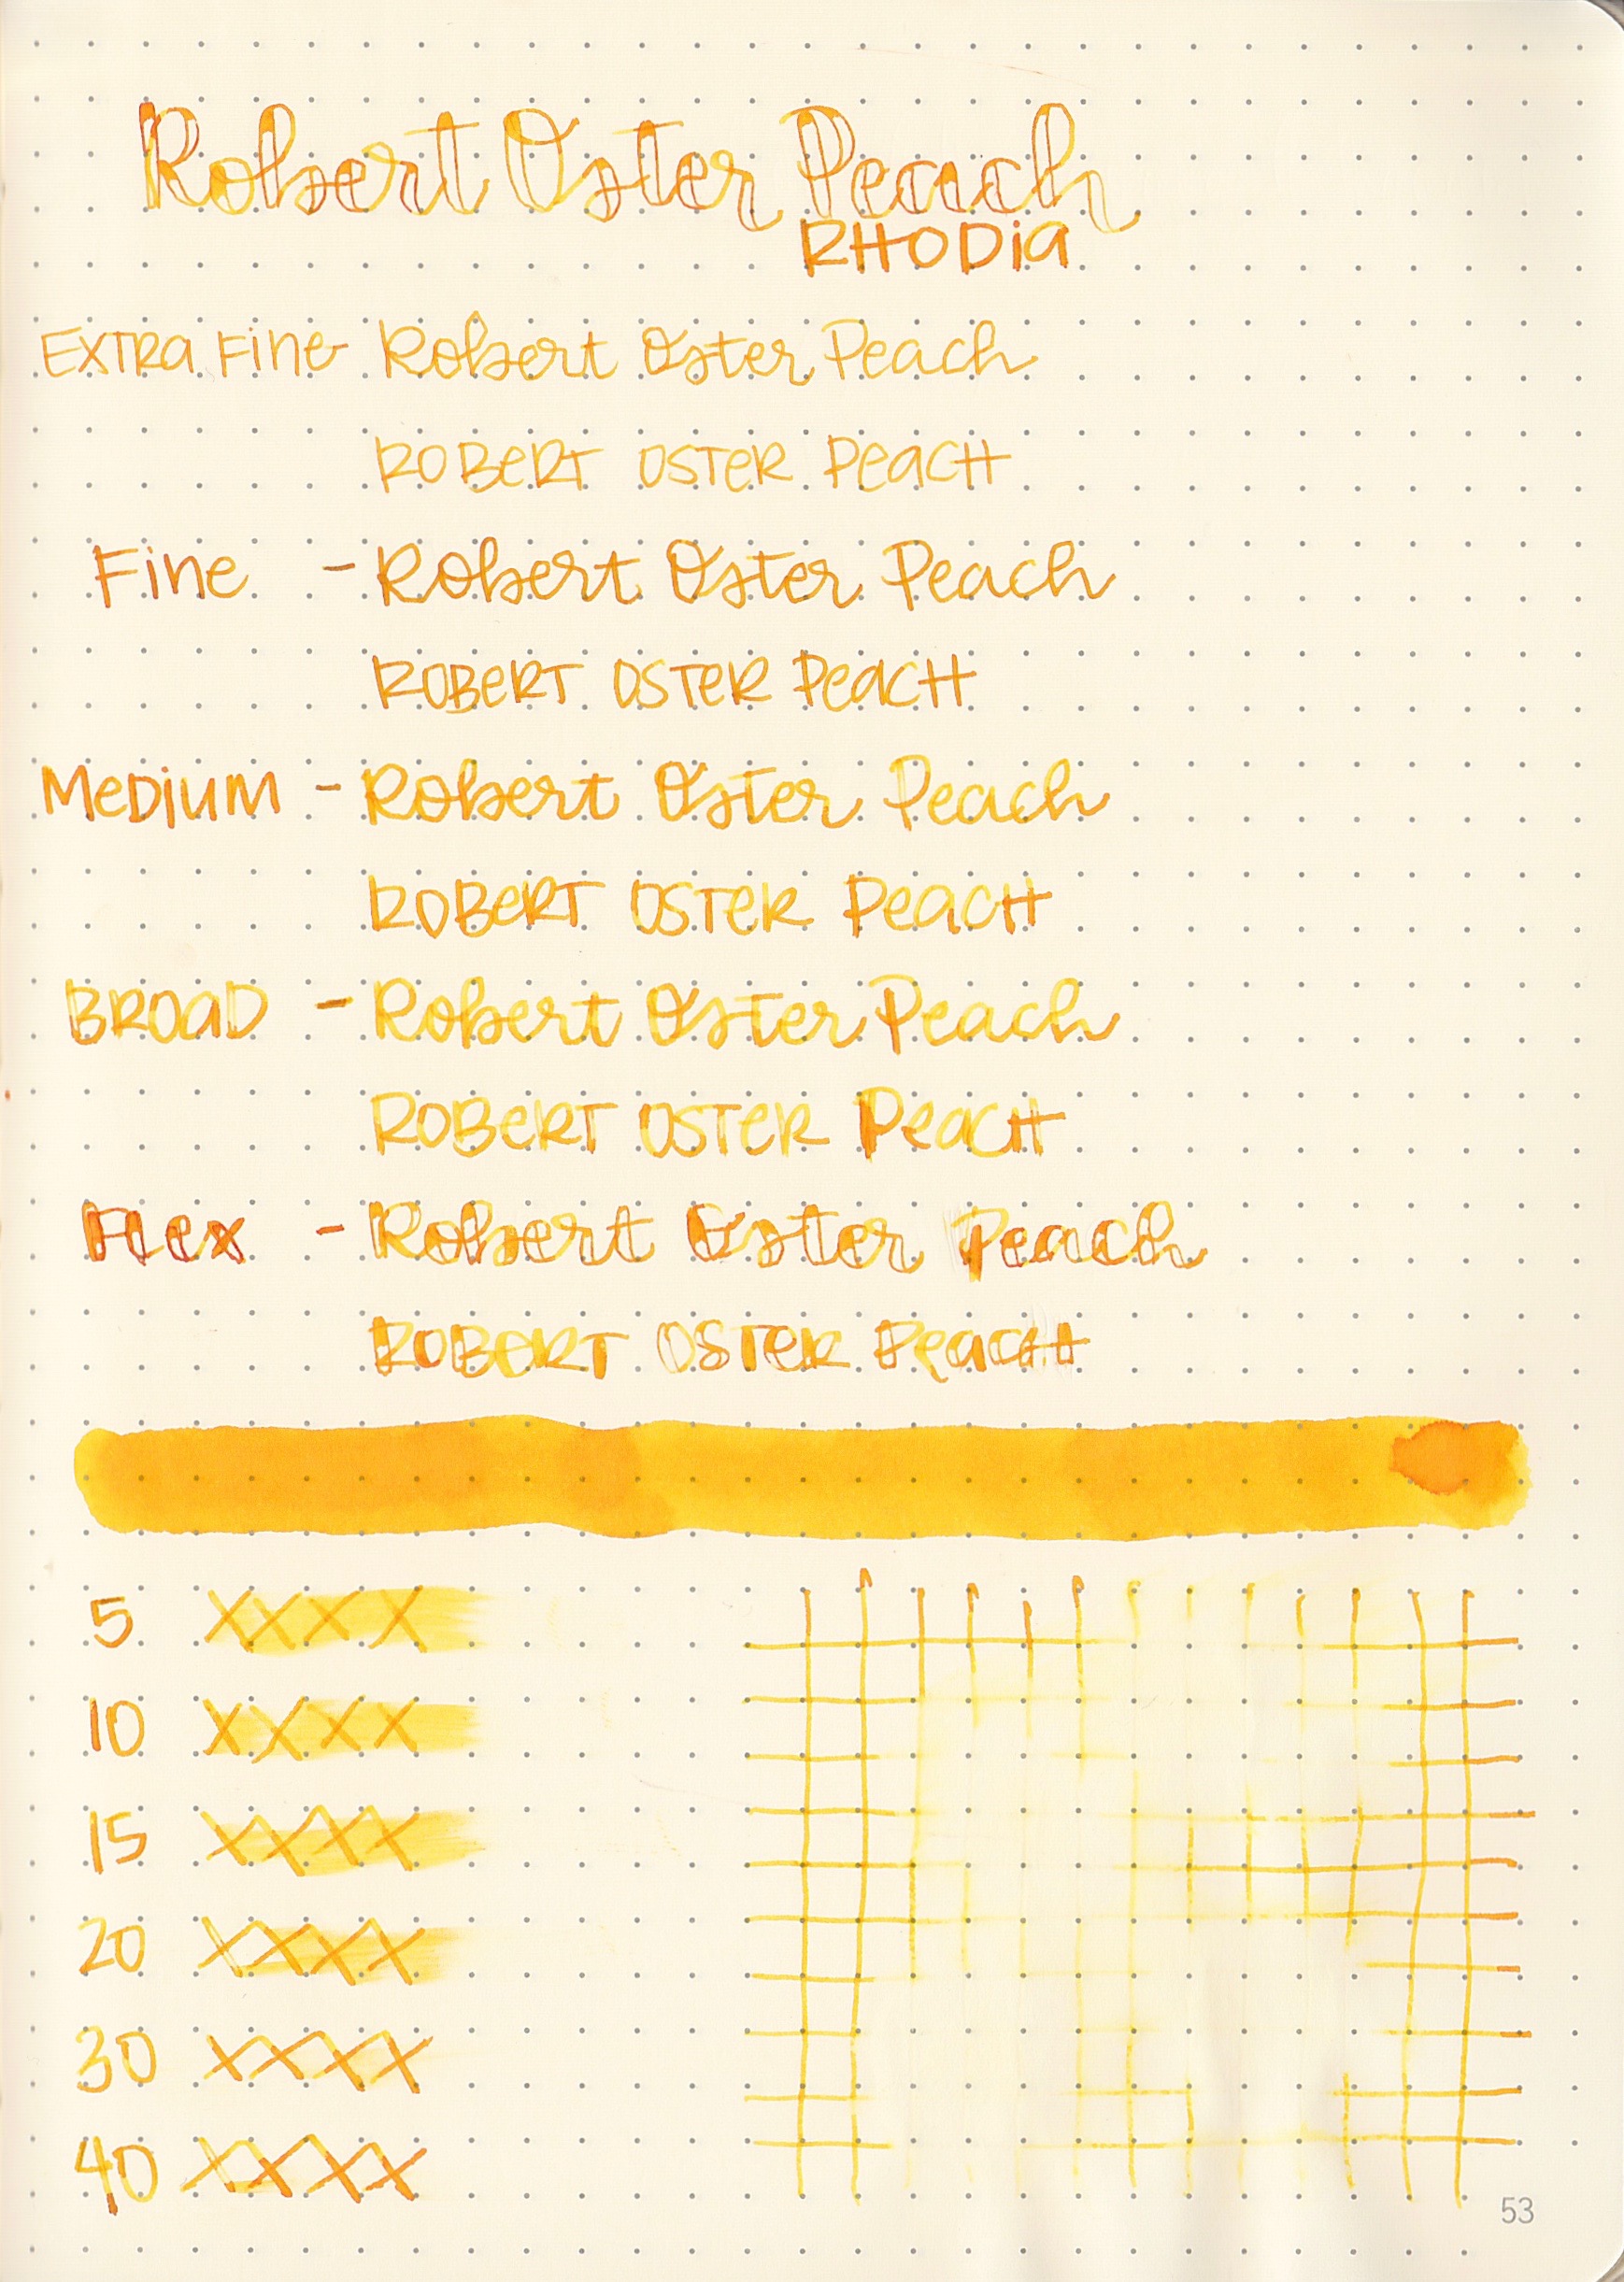 Robert Oster Peach
RHODia
EXTRa Fine - Robert Oster Peach
ROBeRT OSTeR PeaCH
Fine - Robert Oster Peach
ROBeRT OSTeR PeaCH
MeDiUM - Robert Oster Peach
ROBeRT OSTeR PeaCH
BROaD - Robert Oster Peach
ROBeRT OSTeR PeaCH
Flex - Robert Oster Peach
ROBeRT OSTeR PeaCH
5 XXXX
10 XXXX
15 XXXX
20 XXXX
30 XXXX
40 XXXX
53